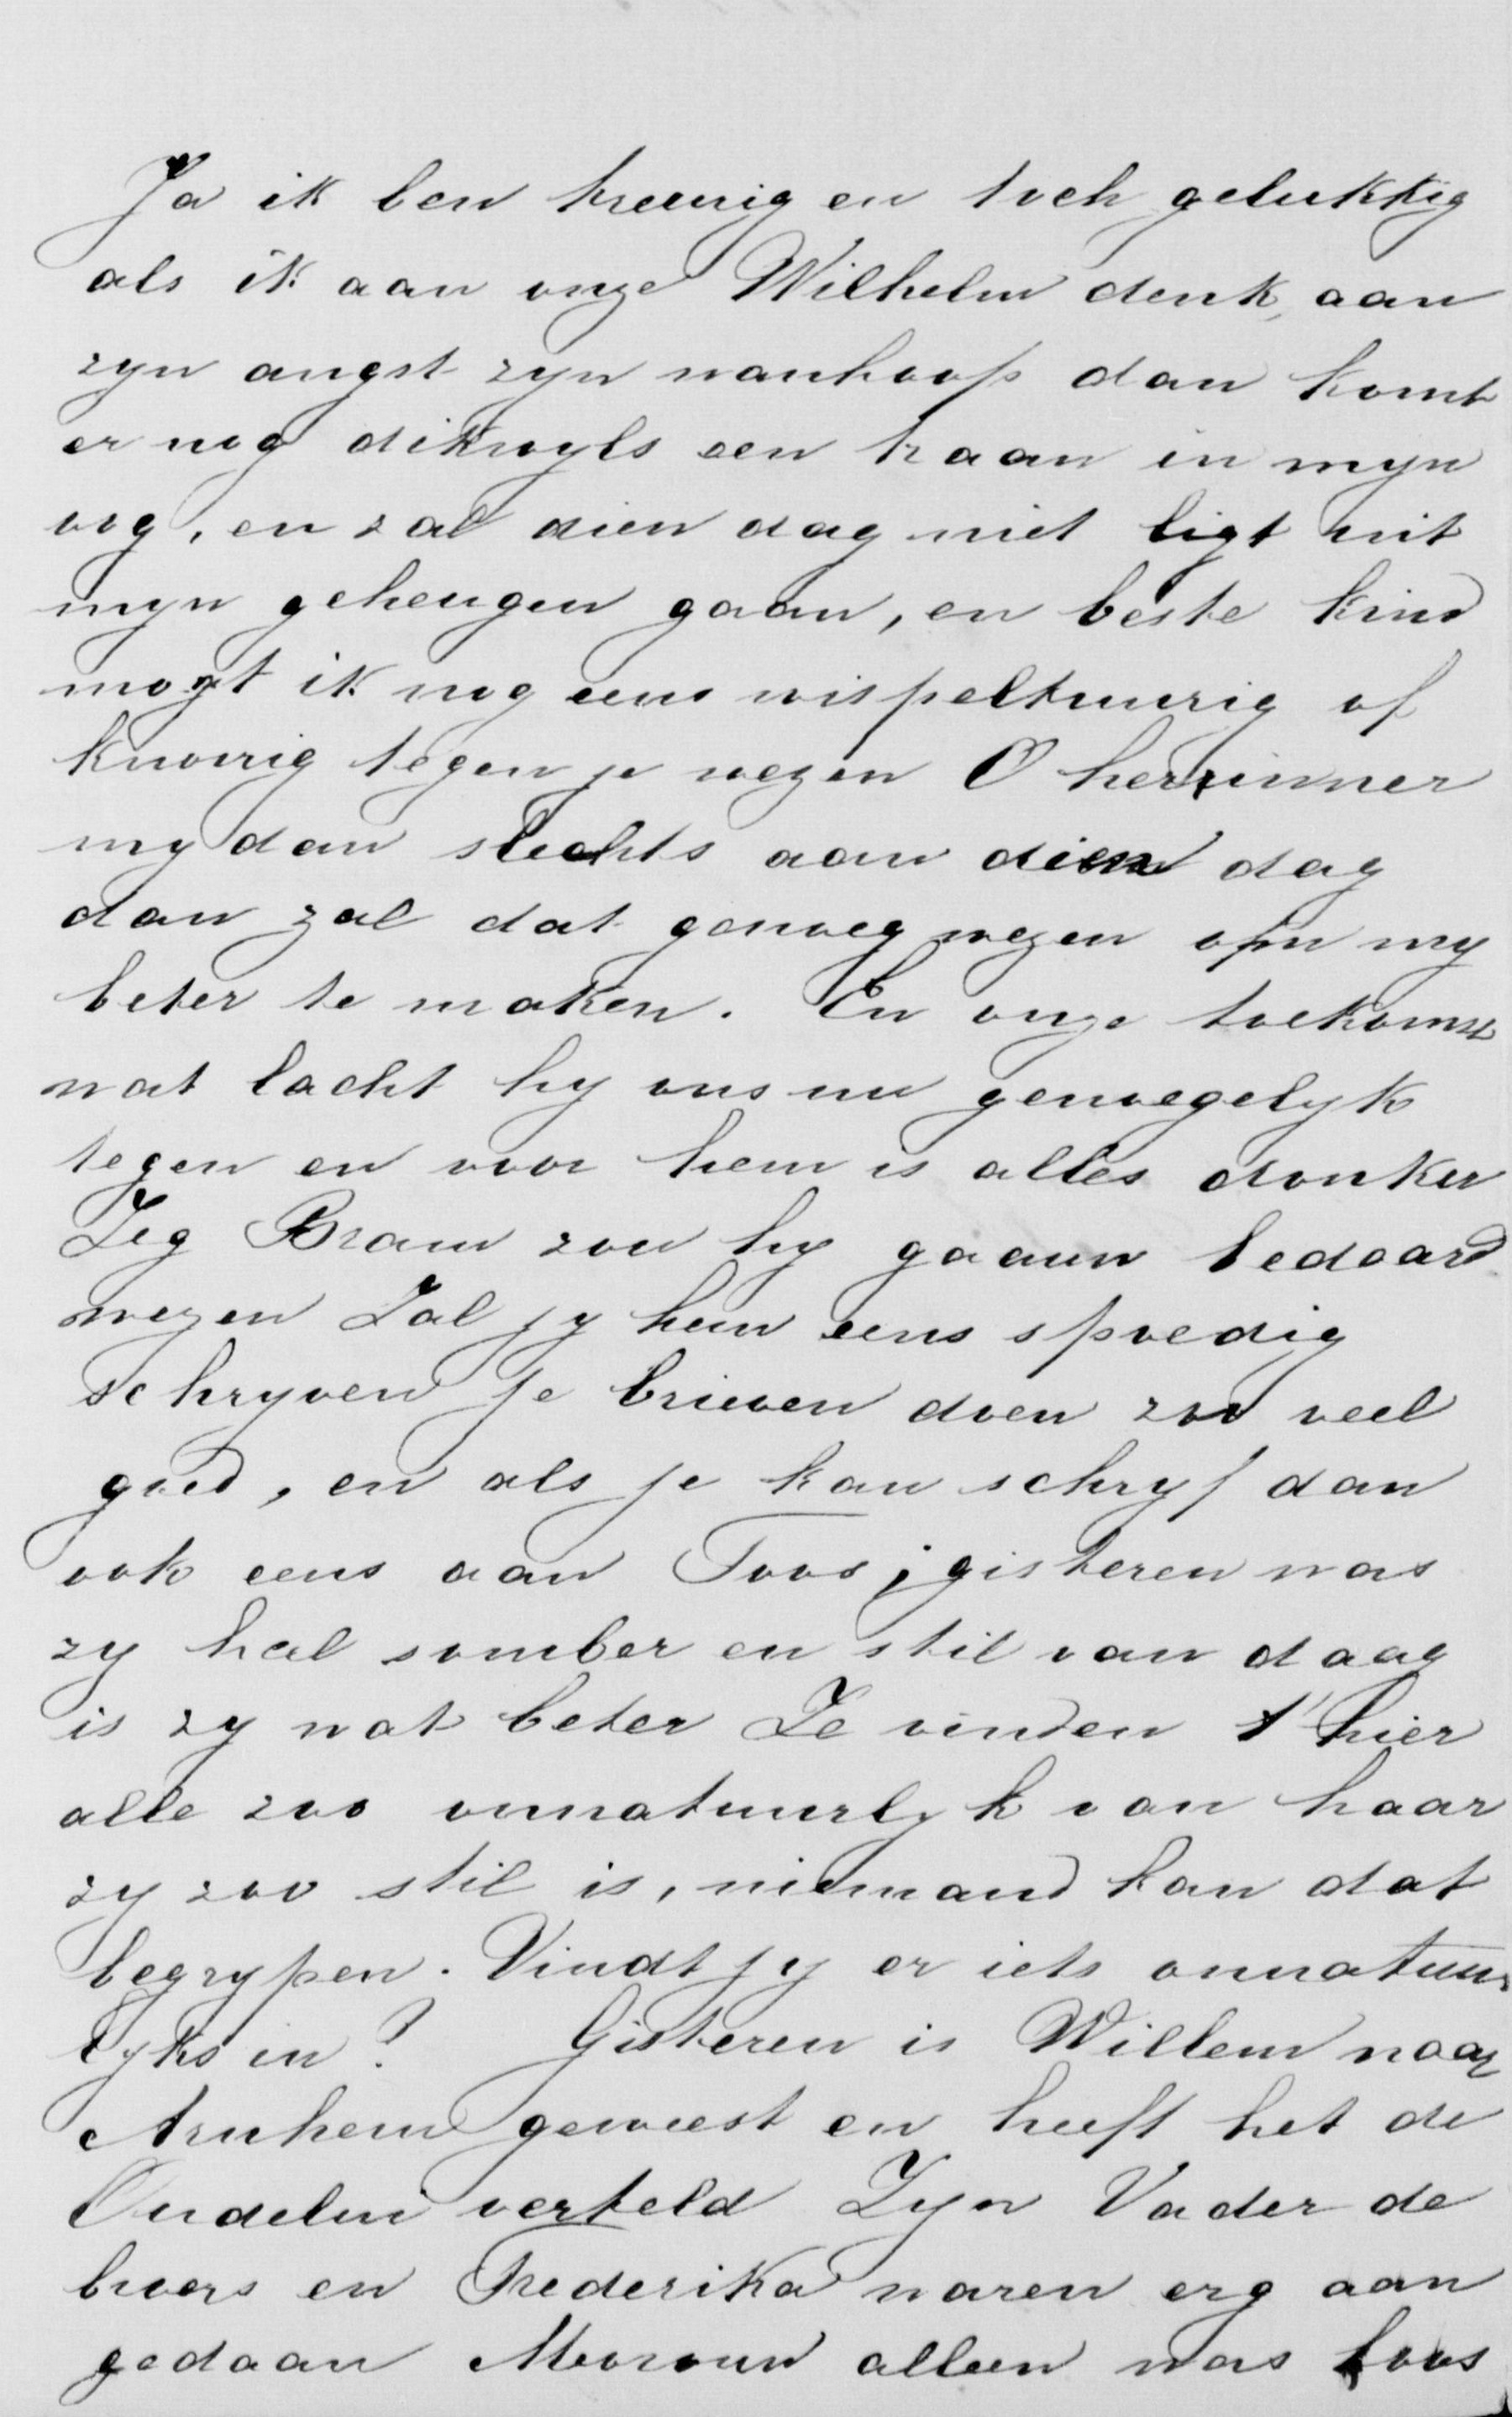 Ja ik ben treurig en toch gelukkig
als ik aan onze Wilhelm denk, aan
zyn angst zyn wanhoop dan komt
er nog dikwyls een traan in myn
oog, en zal dien dag niet ligt uit
myn geheugen gaan, en beste kind
mogt ik nog eens wispeltuurig of
knorrig tegen je wezen O herrinner
my dan slechts aan dien dag
dan zal dat genoeg wezen om my
beter te maken. En onze toekomst
wat lacht hy ons nu genoegelyk
tegen en voor hem is alles donker
Zeg Bram zou hy gaauw bedaard
wezen Zal jy hem eens spoedig
schryven je brieven doen zoo veel
goed, en als je kan schryf dan
ook eens aan Toos; gisteren was
zy heel somber en stil van daag
is zy wat beter Ze vinden t' hier
alle zoo onnatuurlyk van haar
zy zoo stil is, niemand kan dat
begrypen. Vindt jy er iets onnatuur
lyks in? Gisteren is Willem naar
Arnhem geweest en heeft het de
Oudelui verteld Zyn Vader de
broers en Frederika waren erg aan
gedaan Mevrouw alleen was boos